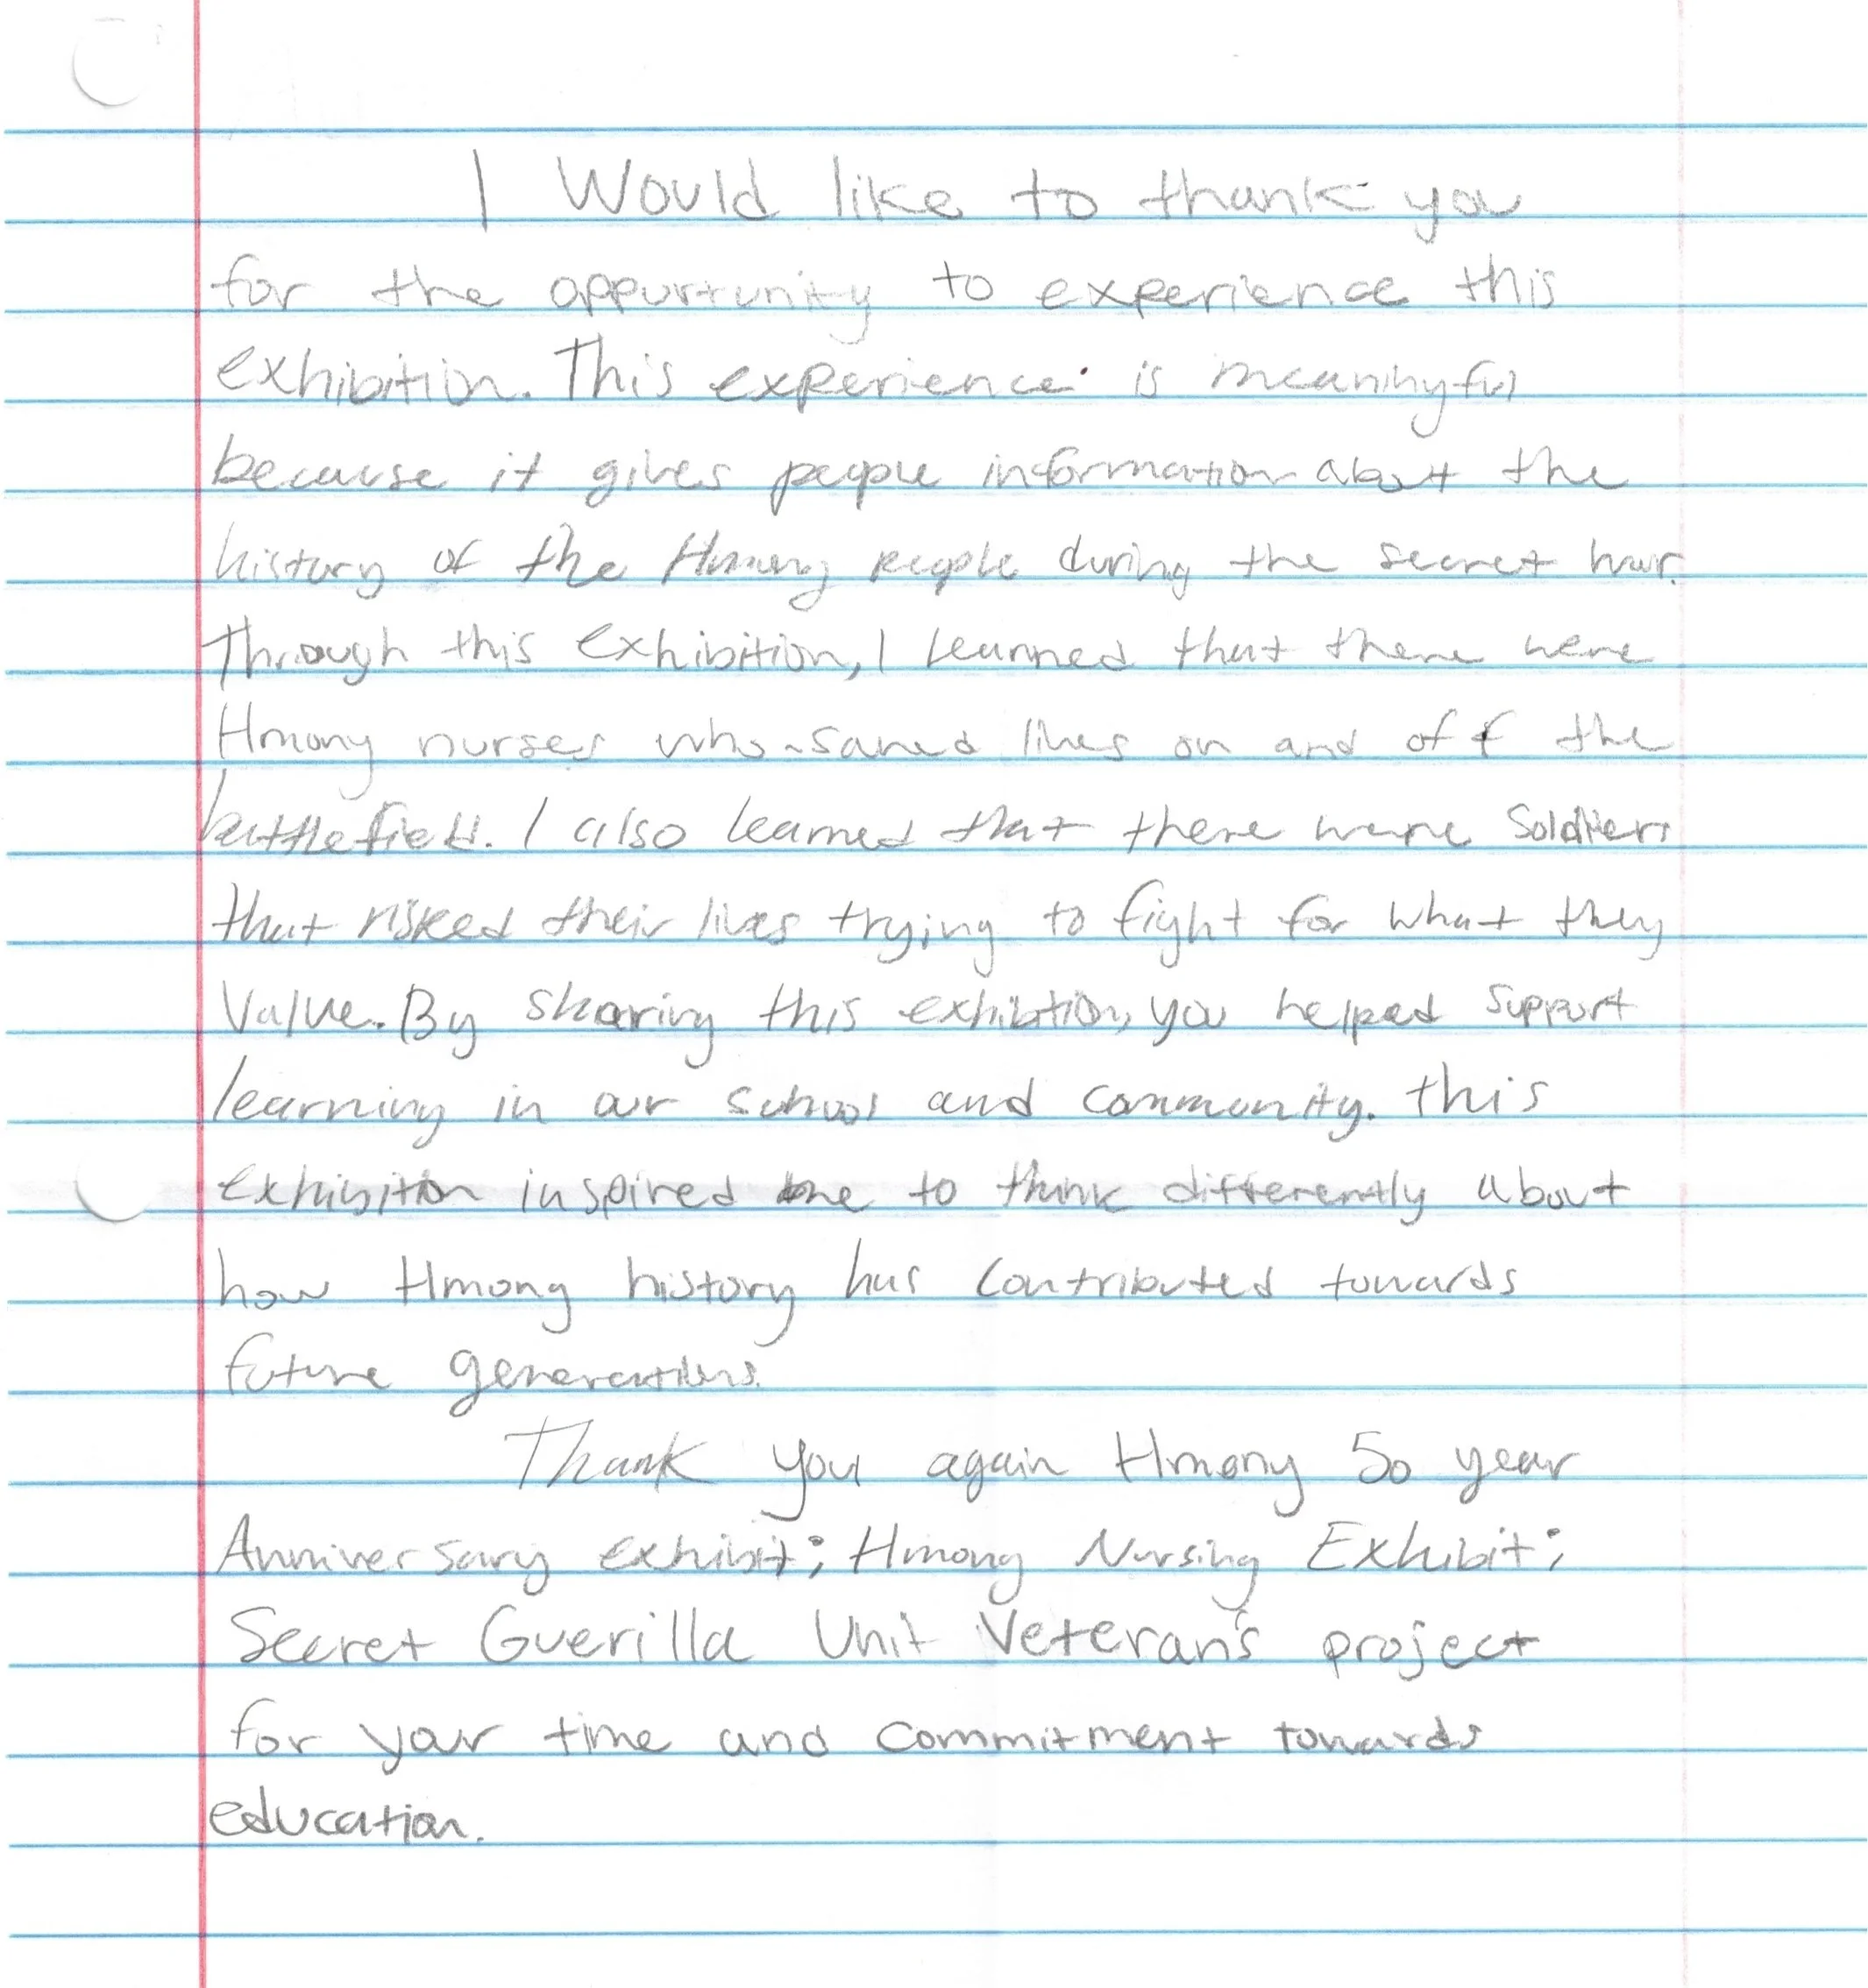 I Would like to thank you
for the oppurtunity to experience this
exhibition. This experience is meaningful
because it gives people information about the
history of the Hmong people during the secret war.
Through this exhibition, I learned that there were
Hmong nurses who saved lives on and off the
battlefield. I also learned that there were Soldiers
that risked their lives trying to fight for what they
Value. By sharing this exhibition, you helped support
learning in our school and community. this
exhibition inspired me to think differently about
how Hmong history has contributed towards
future generations.
Thank you again Hmong 50 year
Anniversary exhibit; Hmong Nursing Exhibit;
Secret Guerilla Unit Veteran's project
for your time and commitment towards
education.